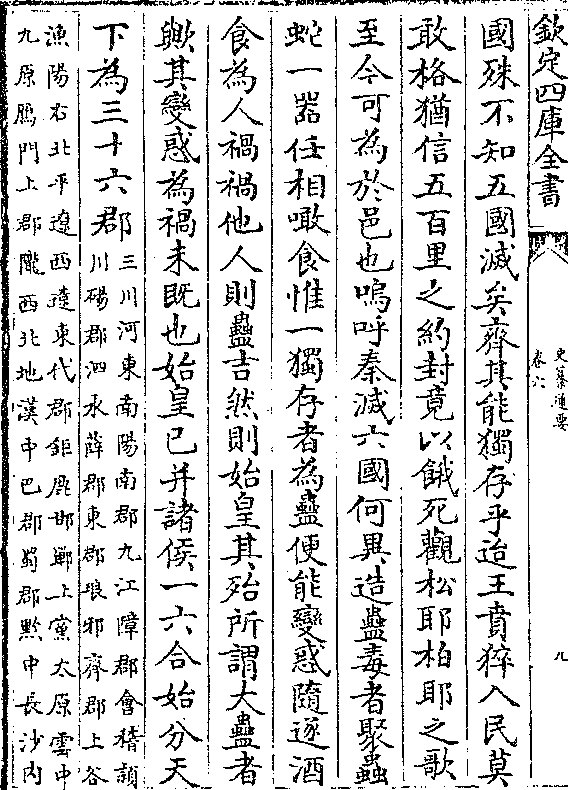 欽定四庫全書
史纂通要
卷六
九
國殊不知五國滅矣齊其能獨存乎迨王賁猝入民莫
敢格猶信五百里之約封竟以餓死觀松耶柏耶之歌
至今可為於邑也嗚呼秦滅六國何異造蠱毒者聚蟲
蛇一器任相噉食惟一獨存者為蠱便能變惑隨逐酒
食為人禍禍他人則蠱吉然則始皇其殆所謂大蠱者
歟其變惑為禍未既也始皇已并諸侯一六合始分天
下為三十六郡三川河東南陽南郡九江鄣郡會稽潁
川碭郡泗水薛郡東郡琅邪齊郡上谷
漁陽右北平遼西遼東代郡鉅鹿邯鄲上黨太原雲中
九原鴈門上郡隴西北地漢中巴郡蜀郡黔中長沙内